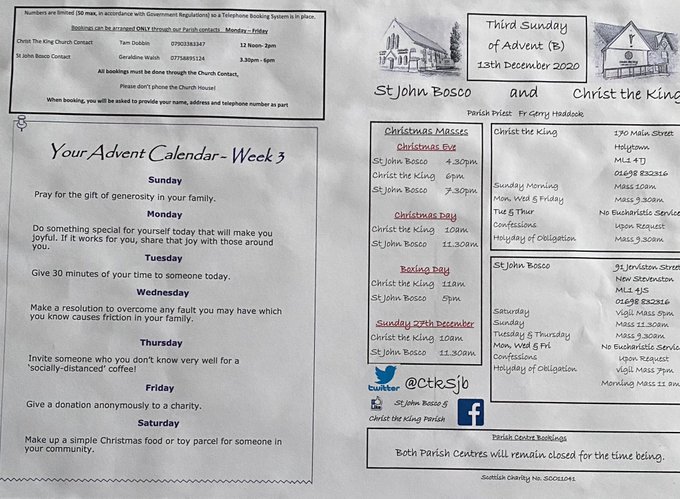 Numbers are limited (50 max, in accordance with Government Regulations) so a Telephone Booking System is in place.
Bookings can be arranged ONLY through our Parish contacts Monday – Friday
Christ The King Church Contact Tam Dobbin 07903383347 12 Noon- 2pm
St John Bosco Contact Geraldine Walsh 07758895124 3.30pm - 6pm
All bookings must be done through the Church Contact,
Please don't phone the Church House!
When booking, you will be asked to provide your name, address and telephone number as part
Your Advent Calendar- Week 3
Sunday
Pray for the gift of generosity in your family.
Monday
Do something special for yourself today that will make you
joyful. If it works for you, share that joy with those around
you.
Tuesday
Give 30 minutes of your time to someone today.
Wednesday
Make a resolution to overcome any fault you may have which
you know causes friction in your family.
Thursday
Invite someone who you don't know very well for a
'socially-distanced' coffee!
Friday
Give a donation anonymously to a charity.
Saturday
Make up a simple Christmas food or toy parcel for someone in
your community.
Third Sunday
of Advent (B)
13th December 2020
St John Bosco and Christ the King
Parish Priest Fr Gerry Haddock
Christmas Masses
Christmas Eve
St John Bosco 4.30pm
Christ the King 6pm
St John Bosco 7.30pm
Christmas Day
Christ the King 10am
St John Bosco 11.30am
Boxing Day
Christ the King 11am
St John Bosco 5pm
Sunday 27th December
Christ the King 10am
St John Bosco 11.30am
twitter @CtkSjb
St John Bosco &
Christ the King Parish
Christ the King 170 Main Street
Holytown
ML1 4TJ
01698 832316
Sunday Morning Mass 10am
Mon, Wed & Friday Mass 9.30am
Tue & Thur No Eucharistic Service
Confessions Upon Request
Holyday of Obligation Mass 9.30am
St John Bosco 91 Jerviston Street
New Stevenston
ML1 4JS
01698 832316
Saturday Vigil Mass 5pm
Sunday Mass 11.30am
Tuesday & Thursday Mass 9.30am
Mon, Wed & Fri No Eucharistic Service
Confessions Upon Request
Holyday of Obligation Vigil Mass 7pm
Morning Mass 11 am
Parish Centre Bookings
Both Parish Centres will remain closed for the time being.
Scottish Charity No. SC011041